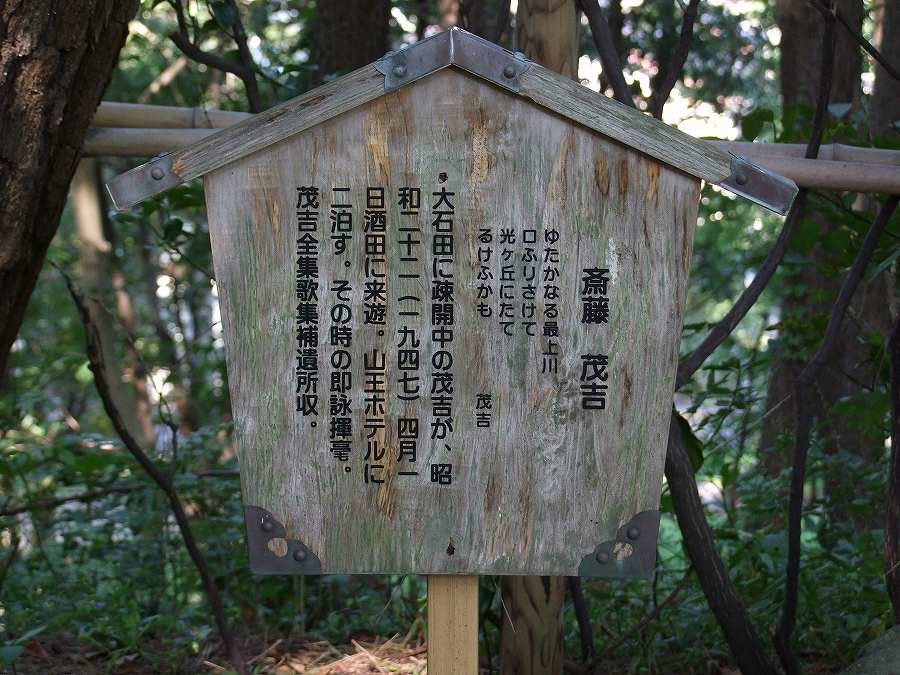 斎藤　茂吉
ゆたかなる最上川
口ふりさけて
光ヶ丘にたて
るけふかも　　茂吉
大石田に疎開中の茂吉が、昭
和二十二（一九四七）四月一
日酒田に来遊。山王ホテルに
二泊す。その時の即詠揮毫。
茂吉全集歌集補遺所収。